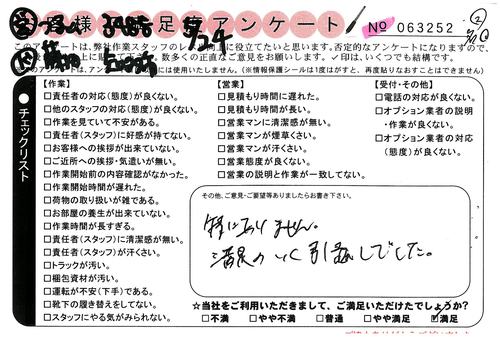 お客様 満足度アンケート
No 063252
このアンケートは、弊社作業スタッフのレベル向上に役立てたいと思います。否定的なアンケートになりますので、
数多くの正直なご意見をお願いします。✓印は、いくつでも結構です。
チェックリスト
【作業】
□責任者の対応(態度)が良くない。
□他のスタッフの対応(態度)が良くない。
□作業を見ていて不安がある。
□責任者(スタッフ)に好感が持てない。
□お客様への挨拶が出来ていない。
□ご近所への挨拶・気遣いが無い。
□作業開始前の内容確認がなかった。
□作業開始時間が遅れた。
□荷物の取り扱いが雑である。
□お部屋の養生が出来ていない。
□作業時間が長すぎる。
□責任者(スタッフ)に清潔感が無い。
□責任者(スタッフ)が汗くさい。
□トラックが汚い。
□梱包資材が汚い。
□運転が不安(下手)である。
□靴下の履き替えをしてない。
□スタッフにやる気がみられない。
【営業】
□見積もり時間に遅れた。
□見積もり時間が長い。
□営業マンに清潔感が無い。
□営業マンが煙草くさい。
□営業マンが汗くさい。
□営業態度が良くない。
□営業の説明と作業が一致してない。
【受付・その他】
□電話の対応が良くない。
□オプション業者の説明
・作業が良くない。
□オプション業者の対応
(態度)が良くない。
その他、ご意見・ご要望等ありましたらお書き下さい。
特にありません。
満足のいく引越しでした。
☆当社をご利用いただきまして、ご満足いただけたでしょうか?
□不満 □やや不満 □普通 □やや満足 ☑満足